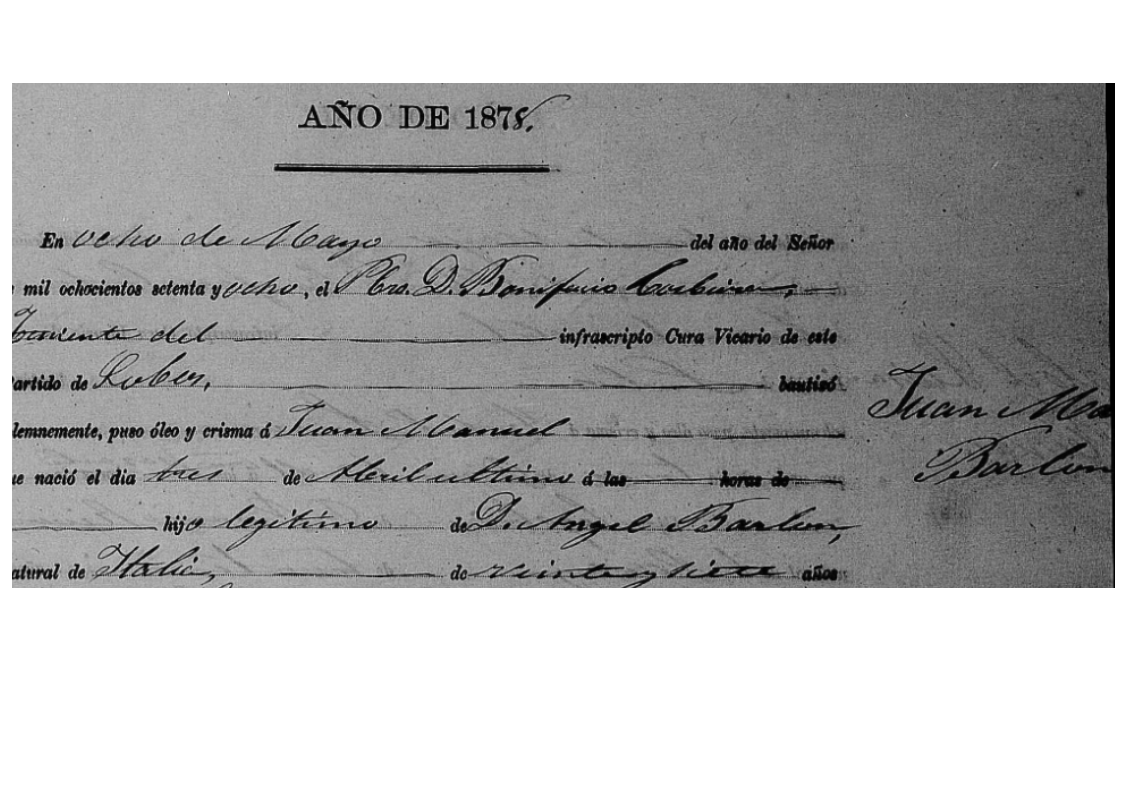 AÑO DE 1878.
En ocho de Mayo del año del Señor
mil ochocientos setenta y ocho, el Pbro. D. Bonifacio
Teniente del infrascripto Cura Vicario de este
artido de Lobos, bautisó
lemnemente, puso óleo y crisma á Juan Manuel
ue nació el dia tres de Abril ultimo á las horas de
hijo legitimo de D. Angel Barlon,
atural de Italia, de veinte y siete años
Juan Ma
Barlon